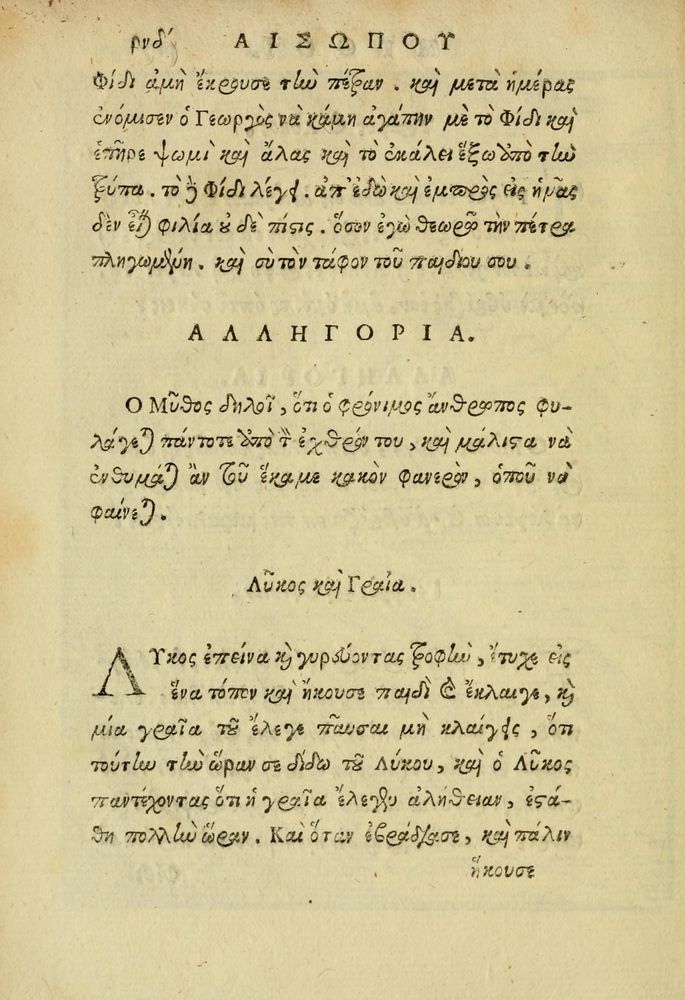 ρνδʹ ΑΙΣΩΠΟΥ
Φίδι ἀμὴ ἔκρουσε τὴν πέτραν. καὶ μετὰ ἡμέρας
ἐνόμισεν ὁ Γεωργὸς νὰ κάμη ἀγάπην μὲ τὸ Φίδι καὶ
ἐπῆρε ψωμὶ καὶ ἅλας καὶ τὸ ἐκάλει ἔξω ἀπὸ τὴν
τρύπα. τὸ δὲ Φίδι λέγει. ἀπ' ἐδὼ καὶ ἐμπρὸς εἰς ἡμᾶς
δὲν εἶναι φιλία οὐδὲ πίστις. ὅσον ἐγὼ θεωρῶ τὴν πέτρα
πληγωμένη. καὶ σὺ τὸν τάφον τοῦ παιδίου σου.
ΑΛΛΗΓΟΡΙΑ.
Ὁ Μῦθος δηλοῖ, ὅτι ὁ φρόνιμος ἄνθρωπος φυ-
λάγεται πάντοτε ἀπὸ τὸν ἐχθρόν του, καὶ μάλιστα νὰ
ἐνθυμάται ἂν τοῦ ἔκαμε κακὸν φανερὸν, ὁποῦ νὰ
φαίνεται.
Λῦκος καὶ Γραῖα.
ΛΥκος ἐπείνα καὶ γυρεύοντας τροφὴν, ἔτυχε εἰς
ἕνα τόπον καὶ ἤκουσε παιδὶ καὶ ἔκλαιγε, καὶ
μία γραῖα τοῦ ἔλεγε παῦσαι μὴ κλαίγεις, ὅτι
τούτην τὴν ὥραν σε δίδω τοῦ Λύκου, καὶ ὁ Λῦκος
παντέχοντας ὅτι ἡ γραῖα ἔλεγεν ἀλήθειαν, ἐστά-
θη πολλὴν ὥραν. Καὶ ὅταν ἐβράδιασε, καὶ πάλιν
ἤκουσε